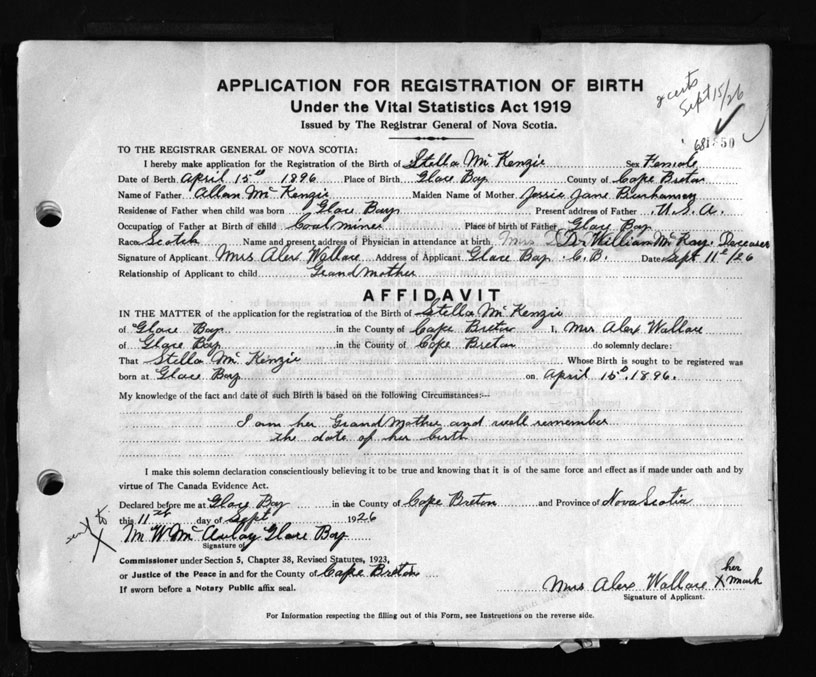 APPLICATION FOR REGISTRATION OF BIRTH
2 certs
Sept 15/26
Under the Vital Statistics Act 1919
Issued by The Registrar General of Nova Scotia.
TO THE REGISTRAR GENERAL OF NOVA SCOTIA:
I hereby make application for the Registration of the Birth of Stella McKenzie Sex Female
Date of Birth April 15th 1896 Place of Birth Glace Bay County of Cape Breton
Name of Father Allan McKenzie Maiden Name of Mother Jessie Jane
Residence of Father when child was born Glace Bay Present address of Father U.S.A.
Occupation of Father at Birth of child Coal miner Place of birth of Father Glace Bay
Race Scotch Name and present address of Physician in attendance at birth Dr William McKay Deceased
Signature of Applicant Mrs Alex Wallace Address of Applicant Glace Bay C.B. Date Sept 11th/26
Relationship of Applicant to child Grand mother
AFFIDAVIT
IN THE MATTER of the application for the registration of the Birth of Stella McKenzie
of Glace Bay in the County of Cape Breton I, Mrs Alex Wallace
of Glace Bay in the County of Cape Breton do solemnly declare:
That Stella McKenzie Whose Birth is sought to be registered was
born at Glace Bay on April 15th 1896.
My knowledge of the fact and date of such Birth is based on the following Circumstances:—
I am her Grand Mother and well remember
the date of her birth
I make this solemn declaration conscientiously believing it to be true and knowing that it is of the same force and effect as if made under oath and by
virtue of The Canada Evidence Act.
Declared before me at Glace Bay in the County of Cape Breton and Province of Nova Scotia
this 11th day of Sept 1926
M W McAulay Glace Bay
Signature of
Commissioner under Section 5, Chapter 38, Revised Statutes, 1923,
or Justice of the Peace in and for the County of Cape Breton
If sworn before a Notary Public affix seal.
Mrs Alex Wallace X her mark
Signature of Applicant.
For Information respecting the filling out of this Form, see Instructions on the reverse side.